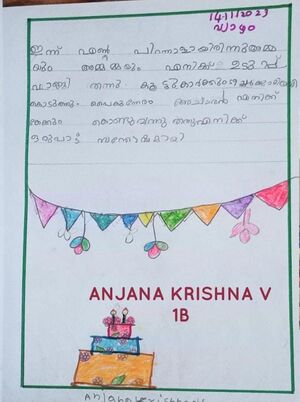 14/11/2023
വ്യാഴം
ഇന്ന് എന്റെ പിറന്നാളായിരുന്നു അമ്മ
യും അമ്മമ്മയും എനിക്ക് ഉടുപ്പ്
വാങ്ങി തന്നു. കൂട്ടുകാർക്കെല്ലാം
കൊടുത്തു വൈകുന്നേരം അച്ഛൻ എനിക്ക്
കേക്കും കൊണ്ടുവന്നു തന്നു എനിക്ക്
ഒരുപാട് സന്തോഷമായി
ANJANA KRISHNA V
1B